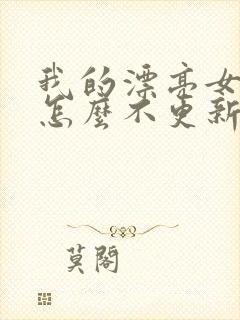 我的漂亮女
怎麼不更新
莫閣